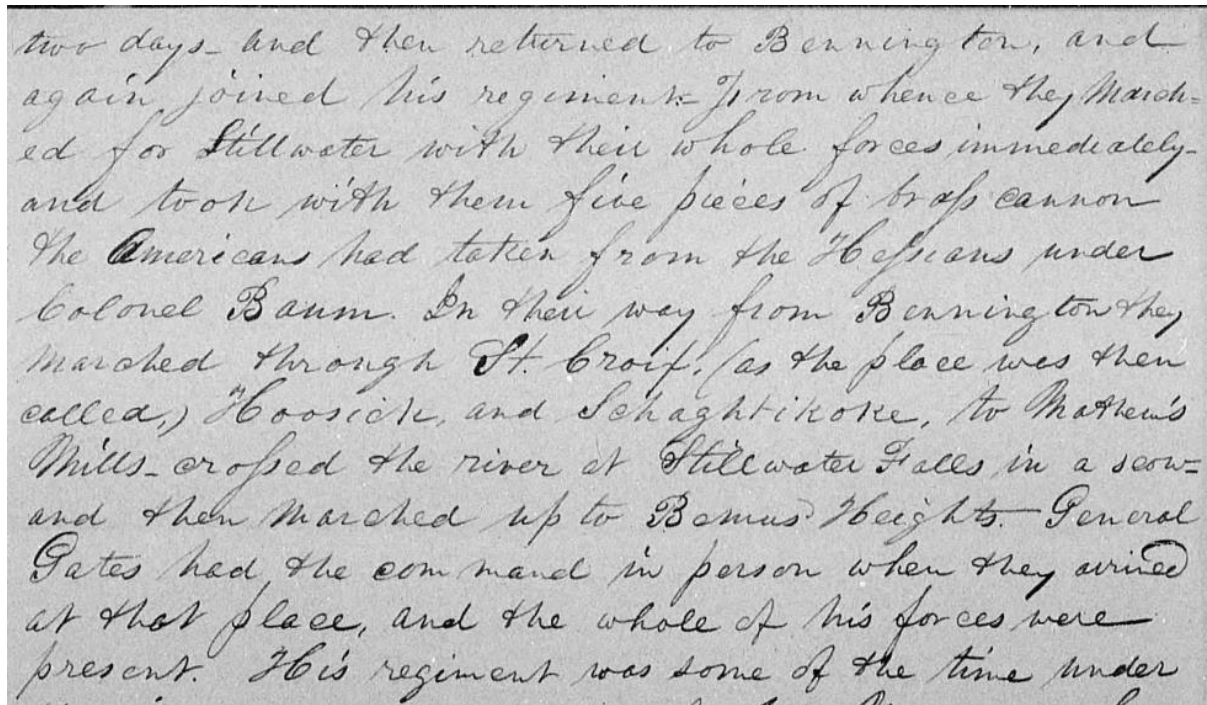 two days - and then returned to Bennington, and
again joined his regiment - From whence they March=
ed for Stillwater with their whole forces immediately -
and took with them five pieces of brass cannon
the Americans had taken from the Hessians under
Colonel Baum. In their way from Bennington they
marched through St. Croix, (as the place was then
called,) Hoosick, and Schaghtikoke, to Mathew's
Mills - crossed the river at Stillwater Falls in a scow =
and then marched up to Bemus Heights. - General
Gates had the command in person when they arrived
at that place, and the whole of his forces were
present. His regiment was some of the time under